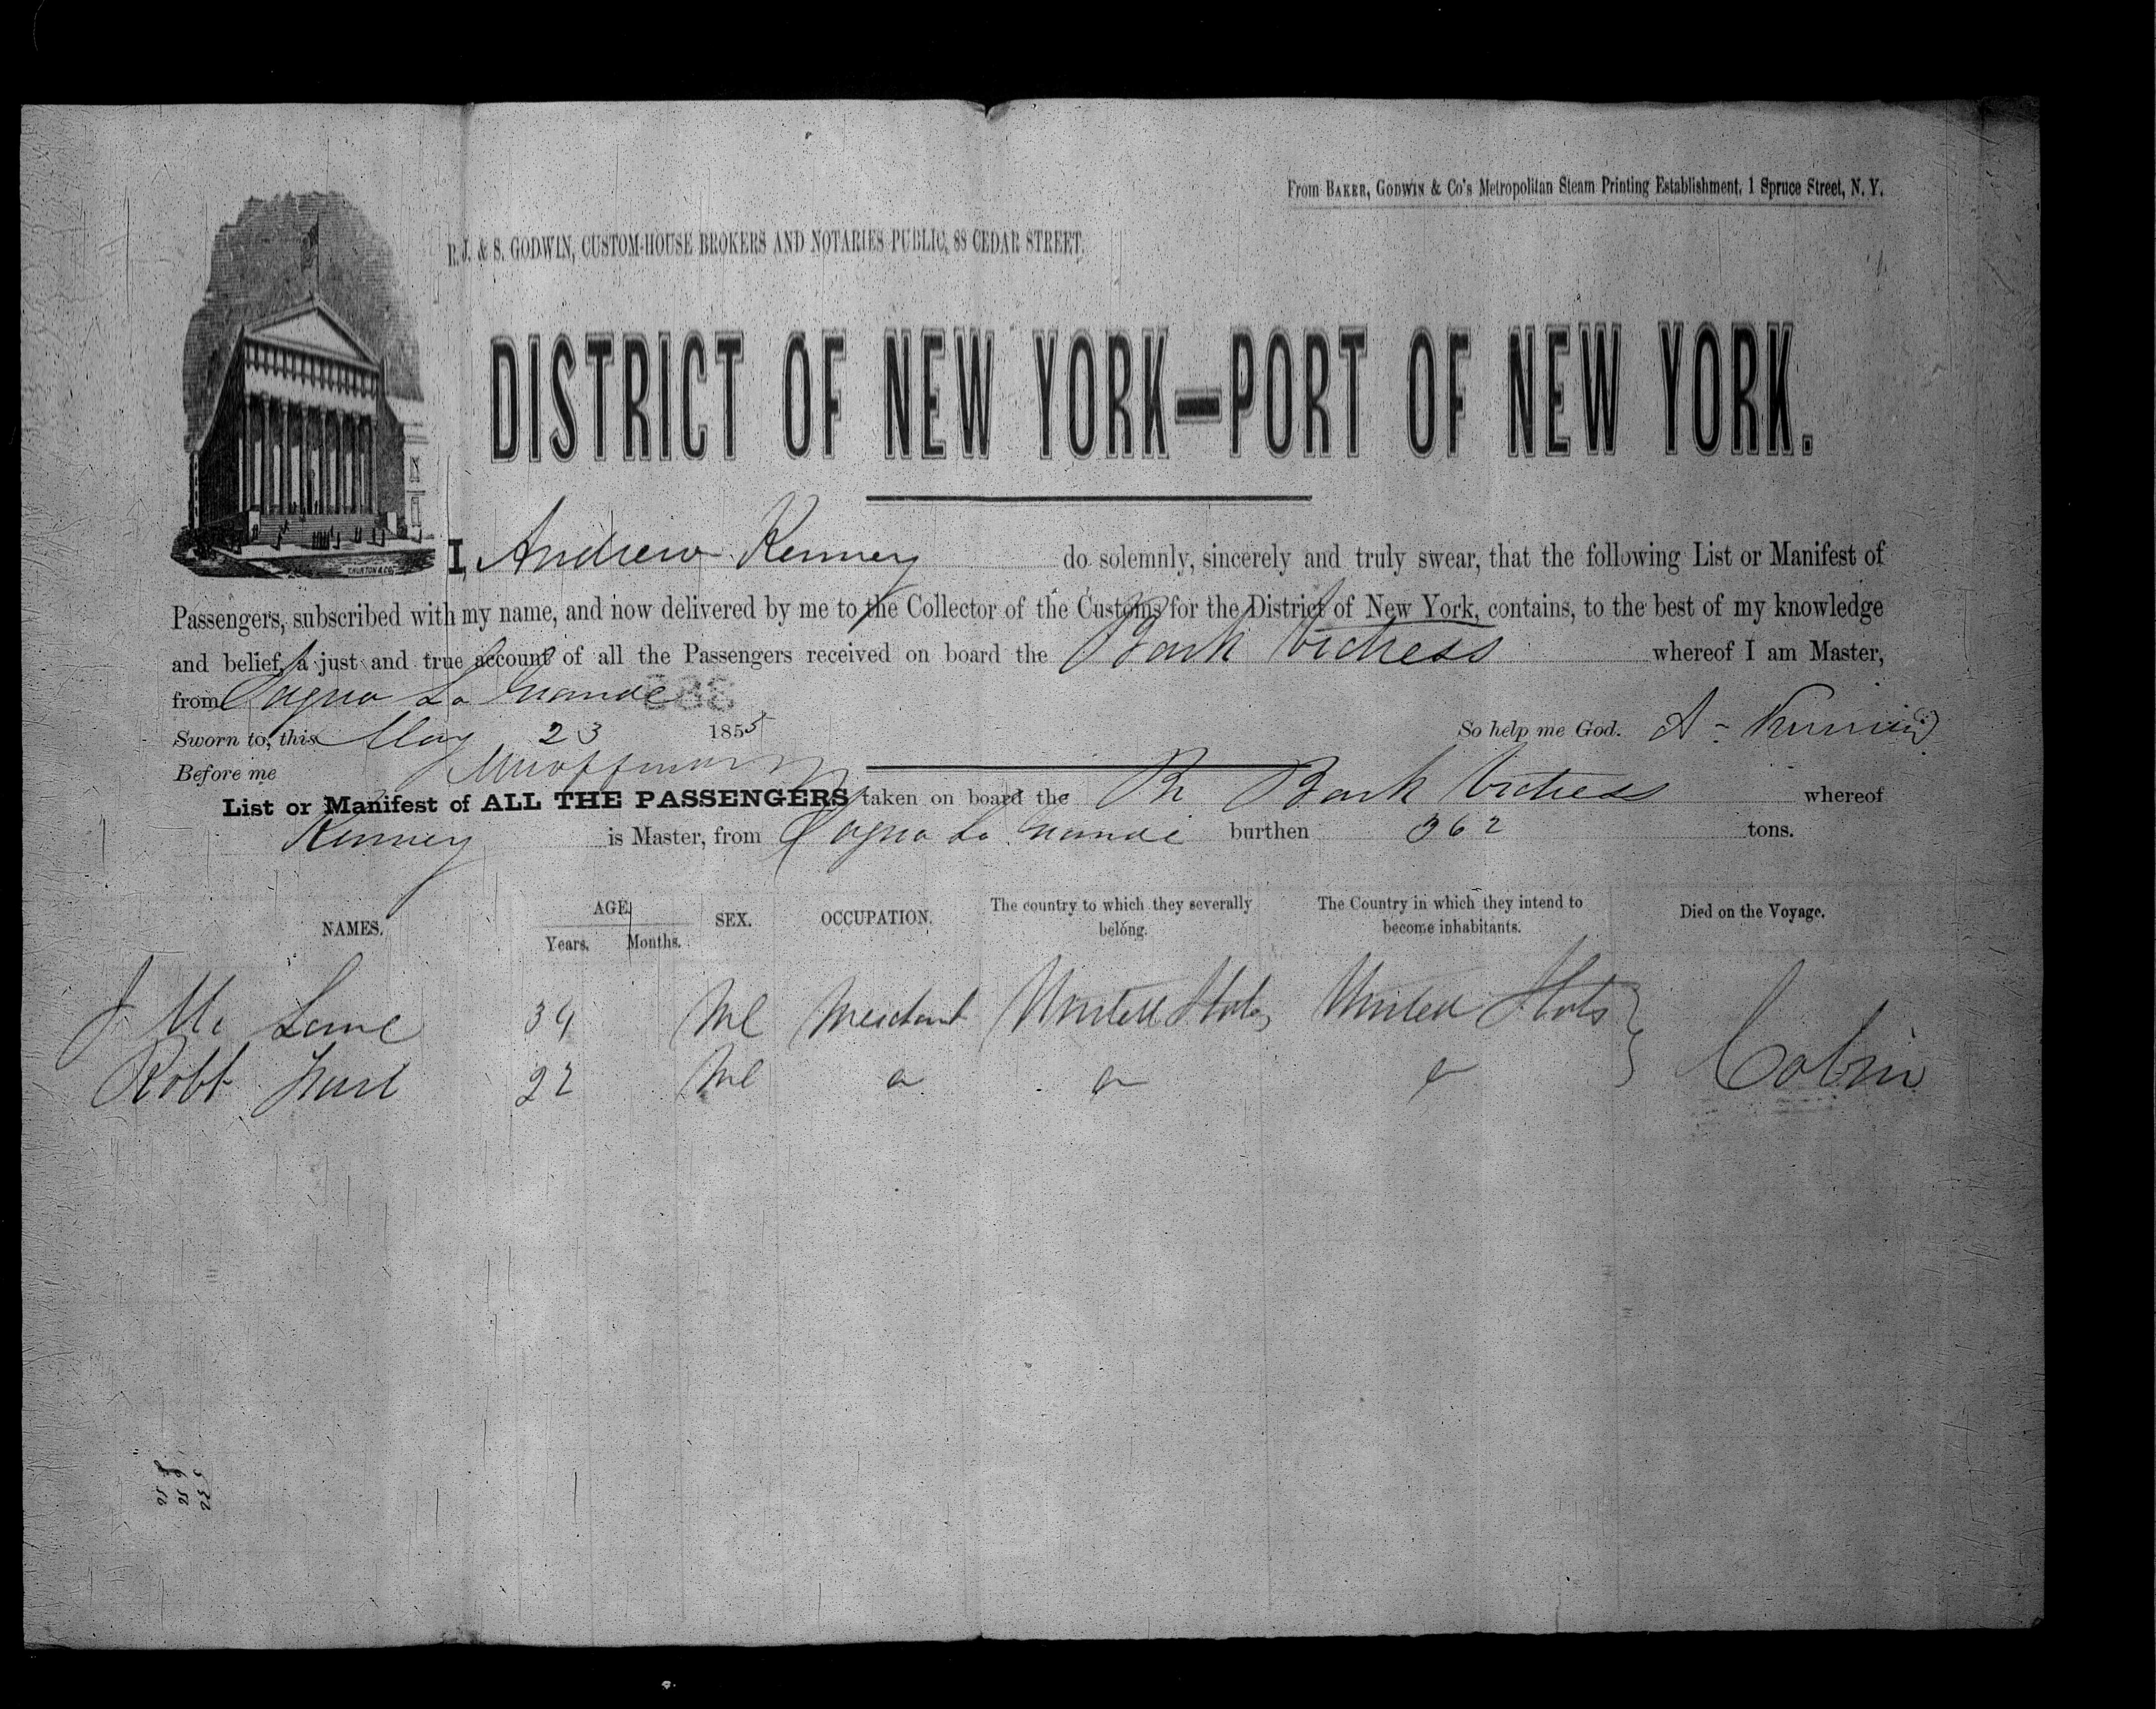 From BAKER, GODWIN & Co's Metropolitan Steam Printing Establishment, 1 Spruce Street, N. Y.
R. J. & S. GODWIN, CUSTOM-HOUSE BROKERS AND NOTARIES PUBLIC, 88 CEDAR STREET.
DISTRICT OF NEW YORK—PORT OF NEW YORK.
I, Andrew Kenney do solemnly, sincerely and truly swear, that the following List or Manifest of
Passengers, subscribed with my name, and now delivered by me to the Collector of the Customs for the District of New York, contains, to the best of my knowledge
and belief, a just and true account of all the Passengers received on board the Bark Victress whereof I am Master,
from Sagua La Grande
Sworn to, this May 23 1855 So help me God. A
Before me
List or Manifest of ALL THE PASSENGERS taken on board the Br Bark Victress whereof
Kenney is Master, from Sagua La Grande burthen 362 tons.
NAMES. AGE. Years. Months. SEX. OCCUPATION. The country to which they severally belong. The Country in which they intend to become inhabitants. Died on the Voyage.
J Mc Lane 34 Ml Merchant United States United States
Robt 22 Ml
Cabin